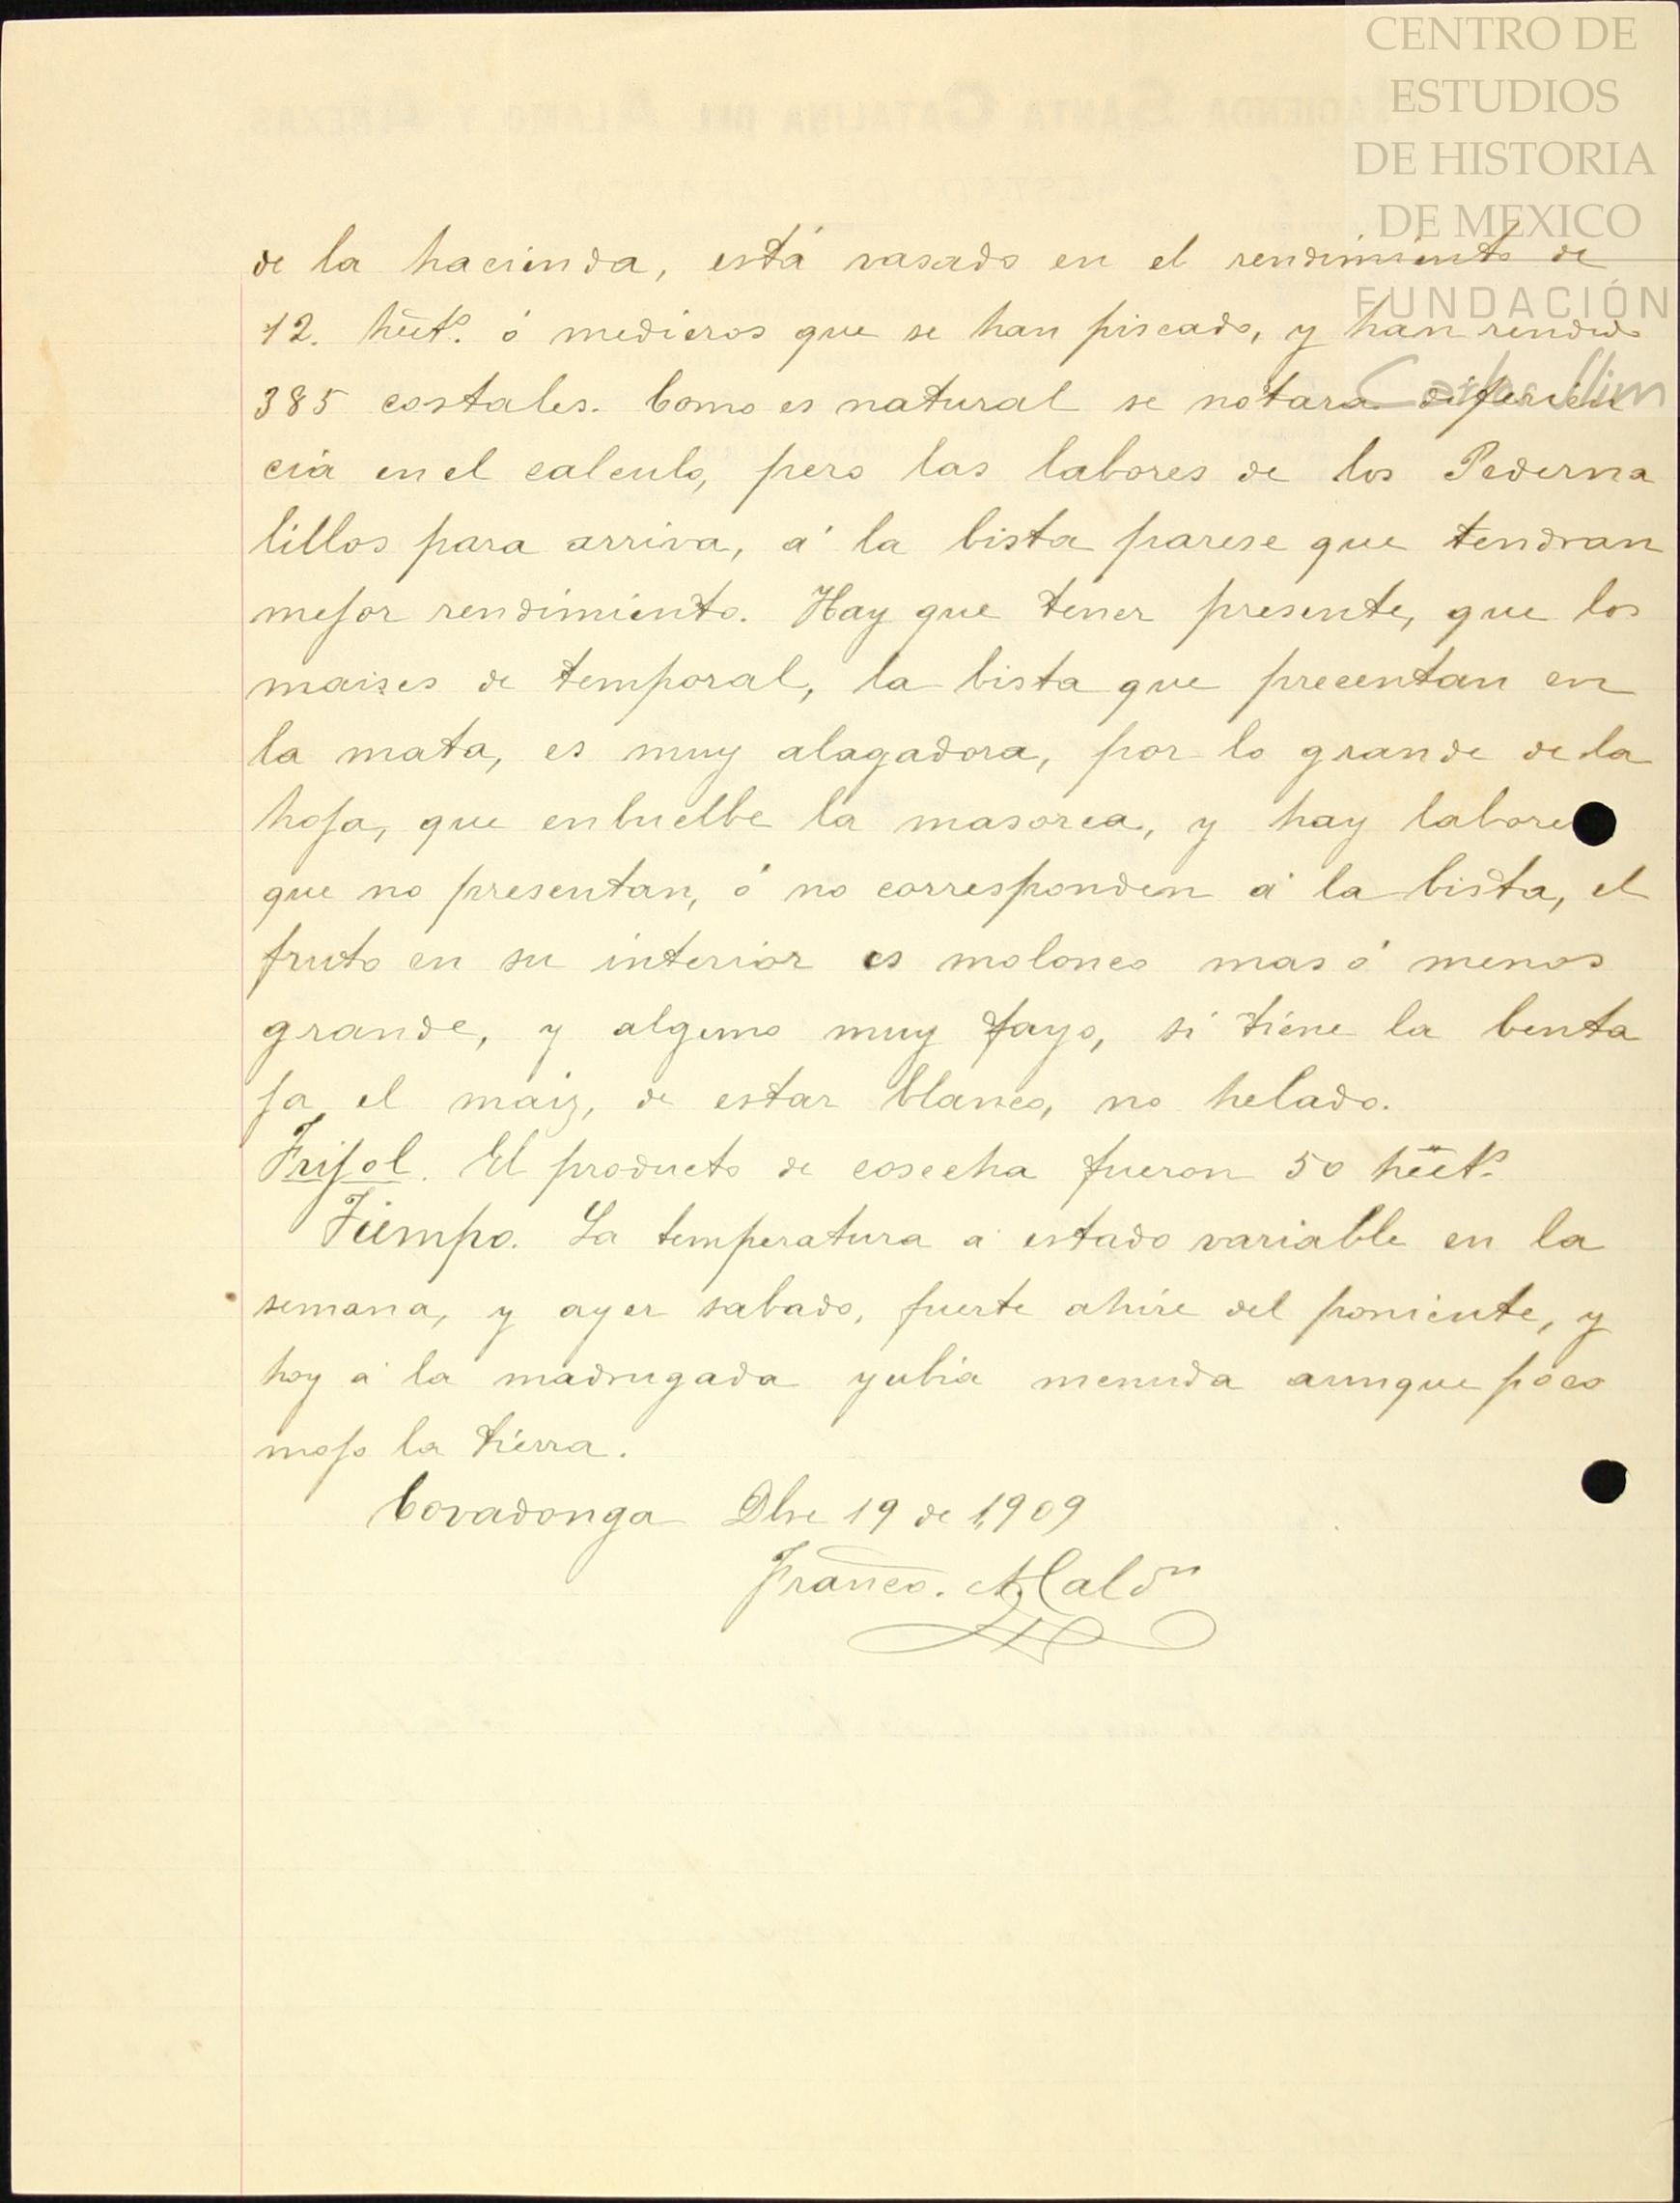 CENTRO DE
ESTUDIOS
DE HISTORIA
DE MEXICO
FUNDACIÓN
Carlos Slim
de la hacienda, está vasado en el rendimiento de
12. hect.s ó medieros que se han piscado, y han rendido
385 costales. Como es natural se notara diferien
cia en el calculo, pero las labores de los Pederna
lillos para arriva, á la bista parese que tendran
mejor rendimiento. Hay que tener presente, que los
maises de temporal, la bista que precentan en
la mata, es muy alagadora, por lo grande de la
hoja, que enbuelbe la masorca, y hay labores
que no presentan, ó no corresponden á la bista, el
fruto en su interior es molonco mas ó menos
grande, y alguno muy fayo, si tiene la benta
ja el maiz, de estar blanco, no helado.
Frijol. El producto de cosecha fueron 50 hect.s
Tiempo. La temperatura a estado variable en la
semana, y ayer sabado, fuerte ahire del poniente, y
hoy á la madrugada yubia menuda aunque poco
mojo la tierra.
Covadonga Dbre 19 de 1,909
Franco. Maldn